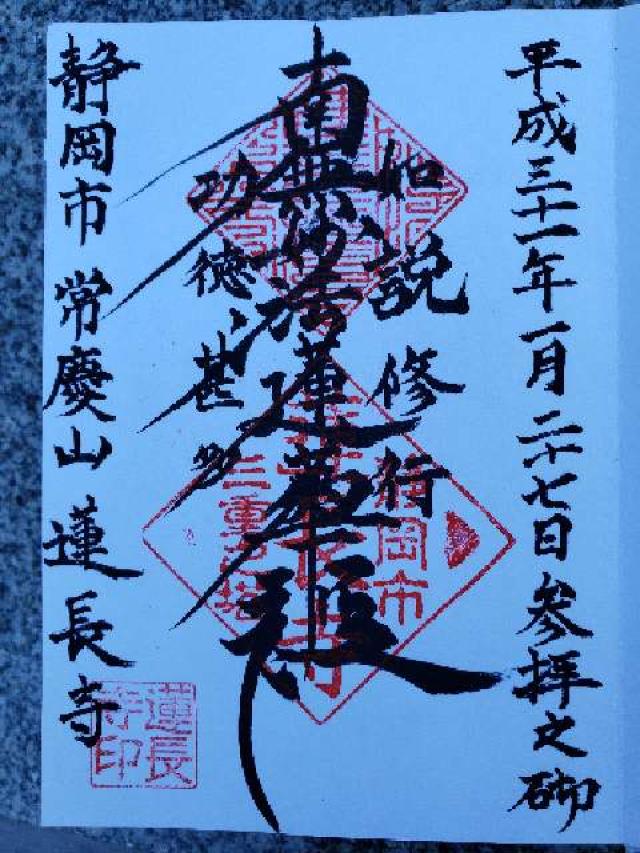 平成三十一年一月二十七日参拝之砌
如説修行
南無妙法蓮華経
功徳甚多
静岡市 常慶山 蓮長寺
静岡市
三重之塔
蓮長
寺印